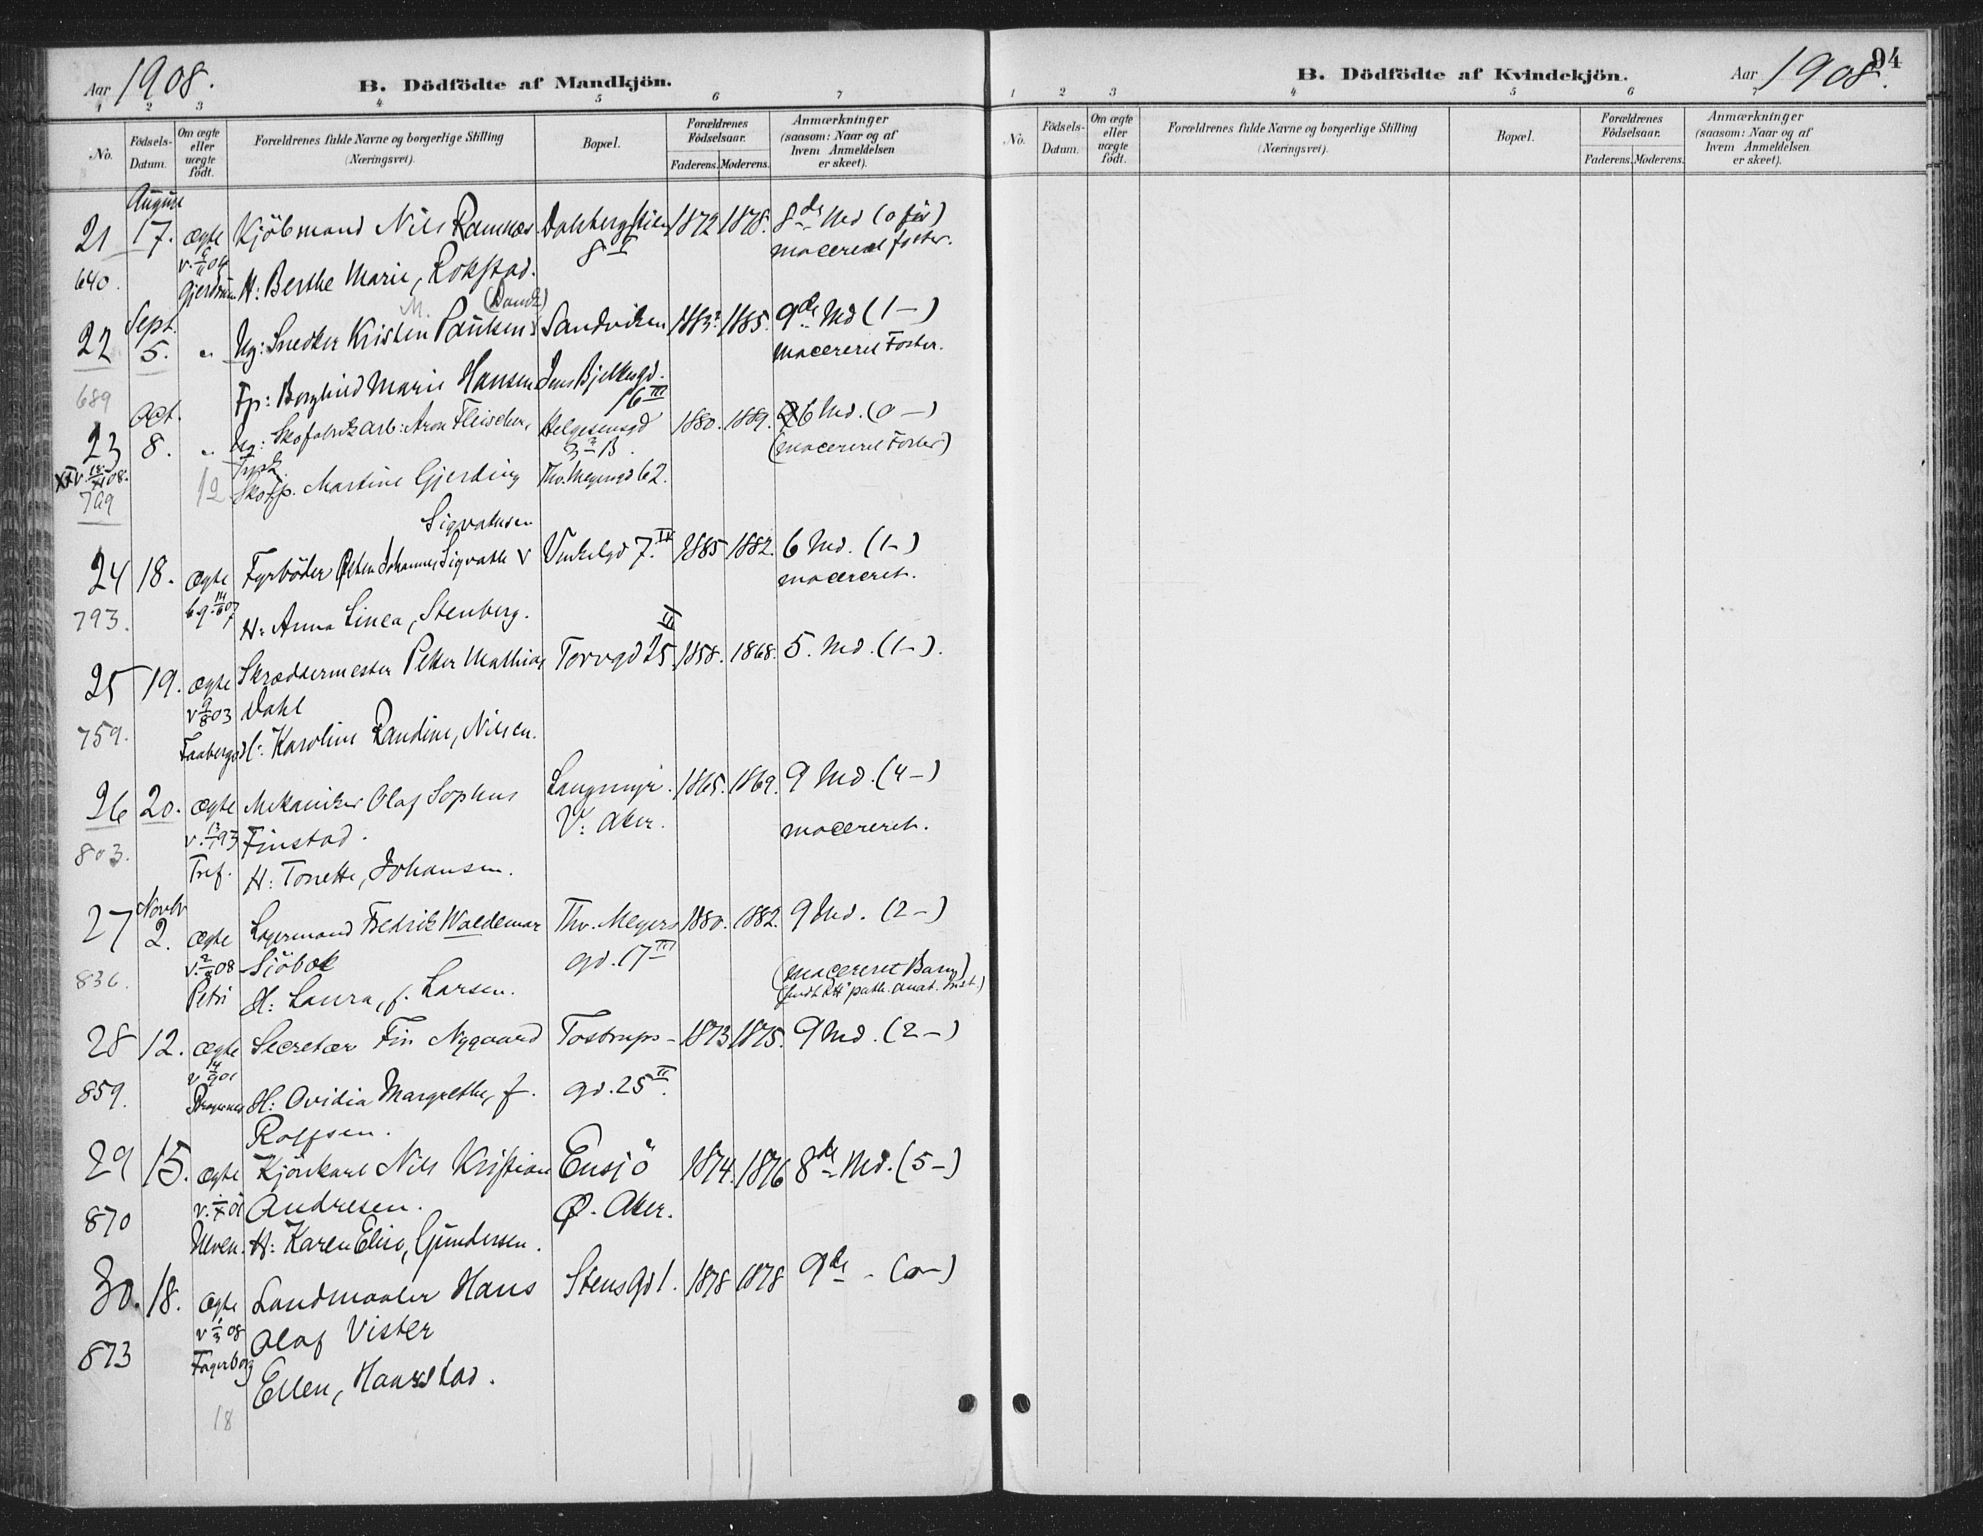 Aar 1908.
B. Dödfödte af Mandkjön.
1 2 3 4 5 6 7
No.
Födsels-Datum.
Om ægte eller uægte födt.
Forældrenes fulde Navne og borgerlige Stilling (Næringsvei).
Bopæl.
Forældrenes Födselsaar.
Faderens. Moderens.
Anmærkninger (saasom: Naar og af hvem Anmeldelsen er skeet).
August
21 17. ægte Kjöbmand Nils Ramnæs Dalsbergstien 1872 1878. 8de Md (0 før)
8 II macereret foster.
640. Gjerdrum H: Berthe Marie, Rokstad.
Sept. M. (Dansk)
22 5. " Ug: Snedker Kristen Paulsen Sandviken 1883? 1885. 9de Md (1 –)
macereret Foster.
689 Fp: Borghild Marie Hansen Jens Bjelkesgd.
16 III
Oct.
23 8. " Ug: Skofabrikarb: Aron Fleischer, Helgesensgd 1880. 1889. 6 Md. (0 –)
3 B. (macereret Foster)
769 Martine Gjerding Thv. Meyersgd 62.
Sigvatsen
24 18. ægte Fyrböder Johannes Sigvatsen Vinkelgd 7. IV 1885 1882. 6 Md. (1 –)
macereret.
793. H: Anna Linea, Stenberg.
25 19. ægte Skræddermester Petter Mathias Torvgd 25 III 1858. 1868. 5. Md. (1 –).
v 9/8 03 Dahl
759. Faaberg H: Karoline Randine, Nilsen.
26 20. ægte Mekaniker Olaf Sophus Langmyr. 1865. 1869. 9 Md. (4 –)
Finstad. V: Aker. macereret.
803. Tref. H: Tonette, Johansen.
Novbr
27 2. ægte Lagermand Fredrik Waldemar Thv. Meyers 1880. 1882. 9 Md. (2 –)
Sjöbok gd. 17 III (macereret Barn)
836. Petri H: Laura, f. Larsen. path. anat. Inst.)
28 12. ægte Secretær Fin Nygaard Tostrups- 1873 1875. 9 Md. (2 –)
859. H: Ovidia Margrethe, f. gd. 25 II.
Rolfsen.
29 15. ægte Kjörekarl Nils Kristian Ensjö 1874. 1876 8de Md. (5 –)
870 Andresen. Ø. Aker.
Uleven. H: Karen Elise, Gundersen.
30. 18. ægte Landmaaler Hans Stensgd 1. 1878 1878 9de – (0 –)
v 1/3 08 Olaf Vister
873 Fagerborg Ellen, Haarstad.
18
94
B. Dödfödte af Kvindekjön.
Aar 1908.
1 2 3 4 5 6
No.
Födsels-Datum.
Om ægte eller uægte födt.
Forældrenes fulde Navne og borgerlige Stilling (Næringsvei).
Bopæl.
Forældrenes Födselsaar.
Faderens. Moderens.
Anmærkninger (saasom: Naar og af hvem Anmeldelsen er skeet).